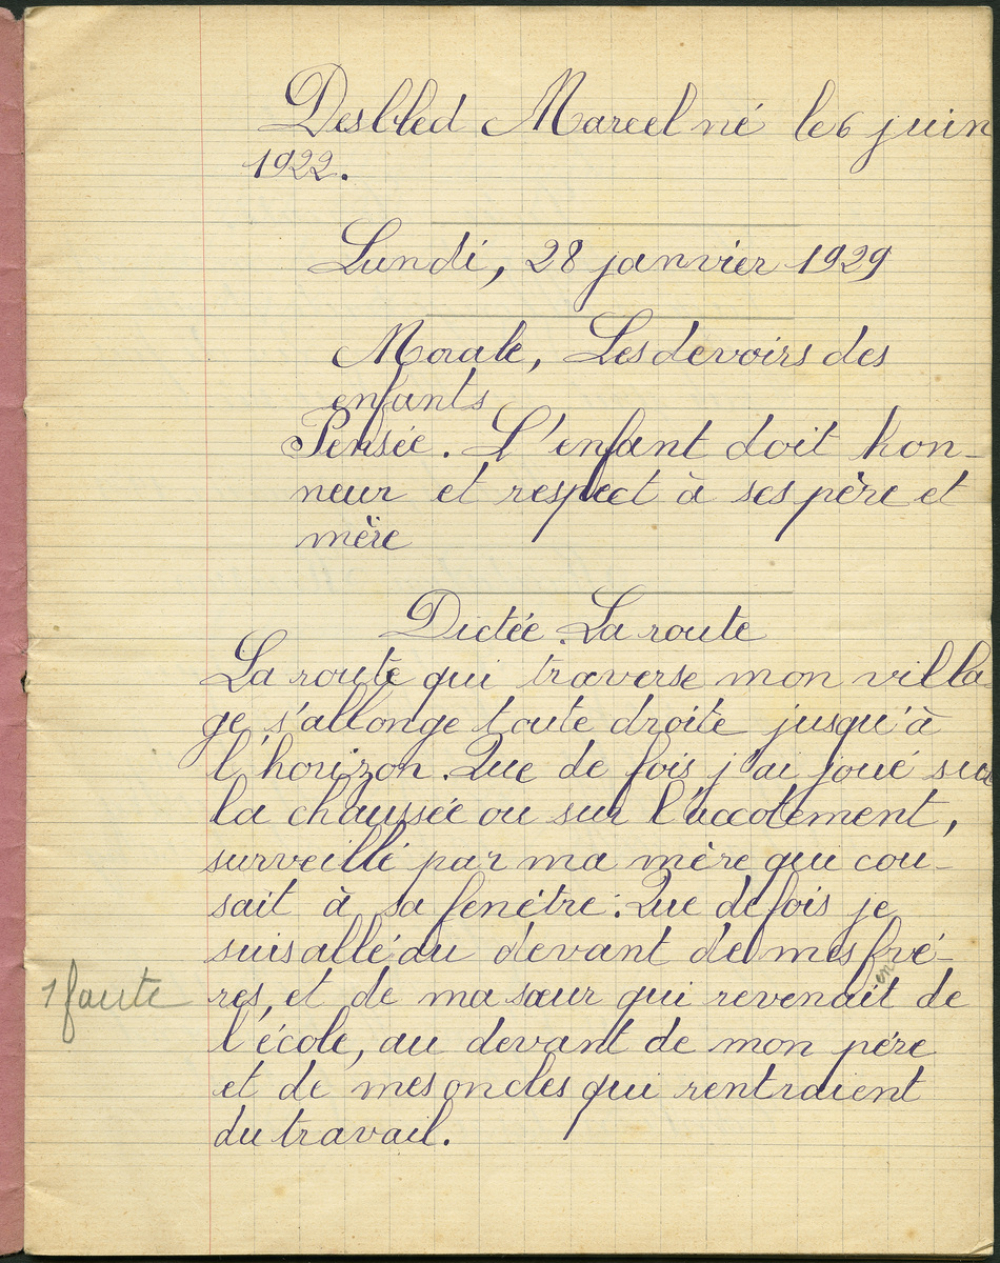 Desbled Marcel né le 6 juin
1922.
Lundi, 28 janvier 1929
Morale, Les devoirs des
enfants
Pensée. L'enfant doit hon-
neur et respect à ses père et
mère
Dictée. La route
La route qui traverse mon villa-
ge, s'allonge toute droite jusqu'à
l'horizon. Que de fois j'ai joué sur
la chaussée ou sur l'accotement,
surveillé par ma mère qui cou-
sait à sa fenêtre. Que de fois je
suis allé au devant de mes frè-
en
1 faute res, et de ma sœur qui revenait de
l'école, au devant de mon père
et de mes oncles qui rentraient
du travail.